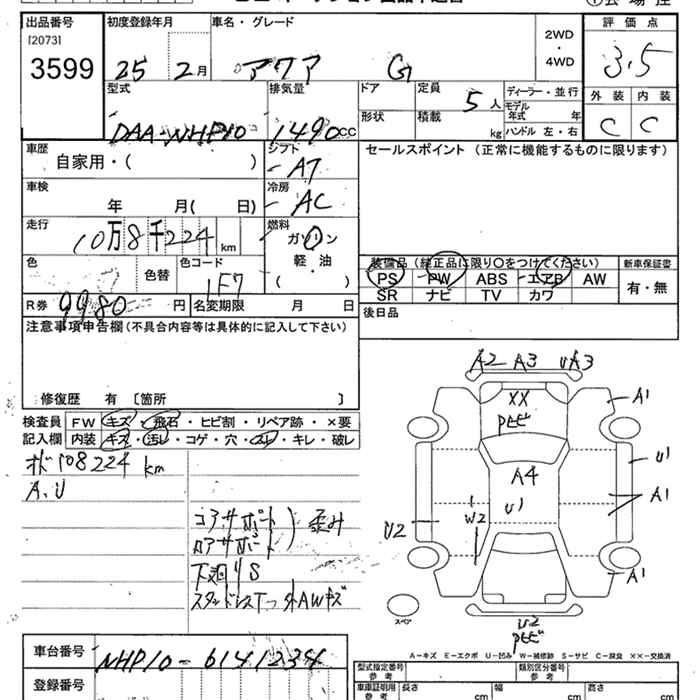 出品番号 初度登録年月 車名・グレード 2WD ・ 4WD 評価点
[2073]
3599 25 2月 アクア G 3.5
型式 排気量 ドア 定員 5人 ディーラー・並行 外装 内装
モデル年式 年
DAA-NHP10 1490cc 形状 積載 kg ハンドル 左・右 C C
車歴 シフト セールスポイント (正常に機能するものに限ります)
自家用・( ) AT
車検 冷房
年 月( 日) AC
走行 燃料
10万8千224km ガソリン
軽・油
( )
色 色替 色コード 1F7
装備品 (純正品に限り○をつけてください) 新車保証書
PS PW ABS エアB AW 有・無
SR ナビ TV カワ
R券 9980円 名変期限 月 日
後日品
注意事項申告欄(不具合内容等は具体的に記入して下さい)
修復歴 有 〔箇所 〕
検査員 FW キズ・飛石・ヒビ割・リペア跡・×要
記入欄 内装 キズ・汚レ・コゲ・穴・スレ・キレ・破レ
オド108224km
A.U
コアサポート
ロアサポート ) 歪み
下廻りS
スタッドレスT
外AWキズ
A2 A3 UA3
XX
A1
A4
U1
U1
A1
U2
W2
A1
スペア
U2
A-キズ E-エクボ U-凹み W-補修跡 S-サビ C-腐食 XX-交換済
車台番号 NHP10-6141234
登録番号
型式指定番号 参考 類別区分番号 参考
車庫証明用 参考 長さ cm 幅 cm 高さ cm